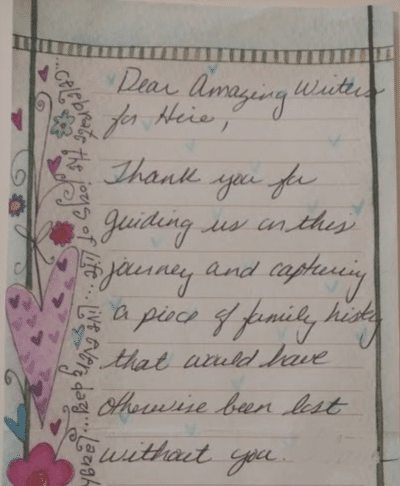 Dear Amazing Writers
for Hire,
Thank you for
guiding us on this
journey and capturing
a piece of family histry
that would have
otherwise been lost
without you.
Celebrate the joys of life... live every day... Laugh